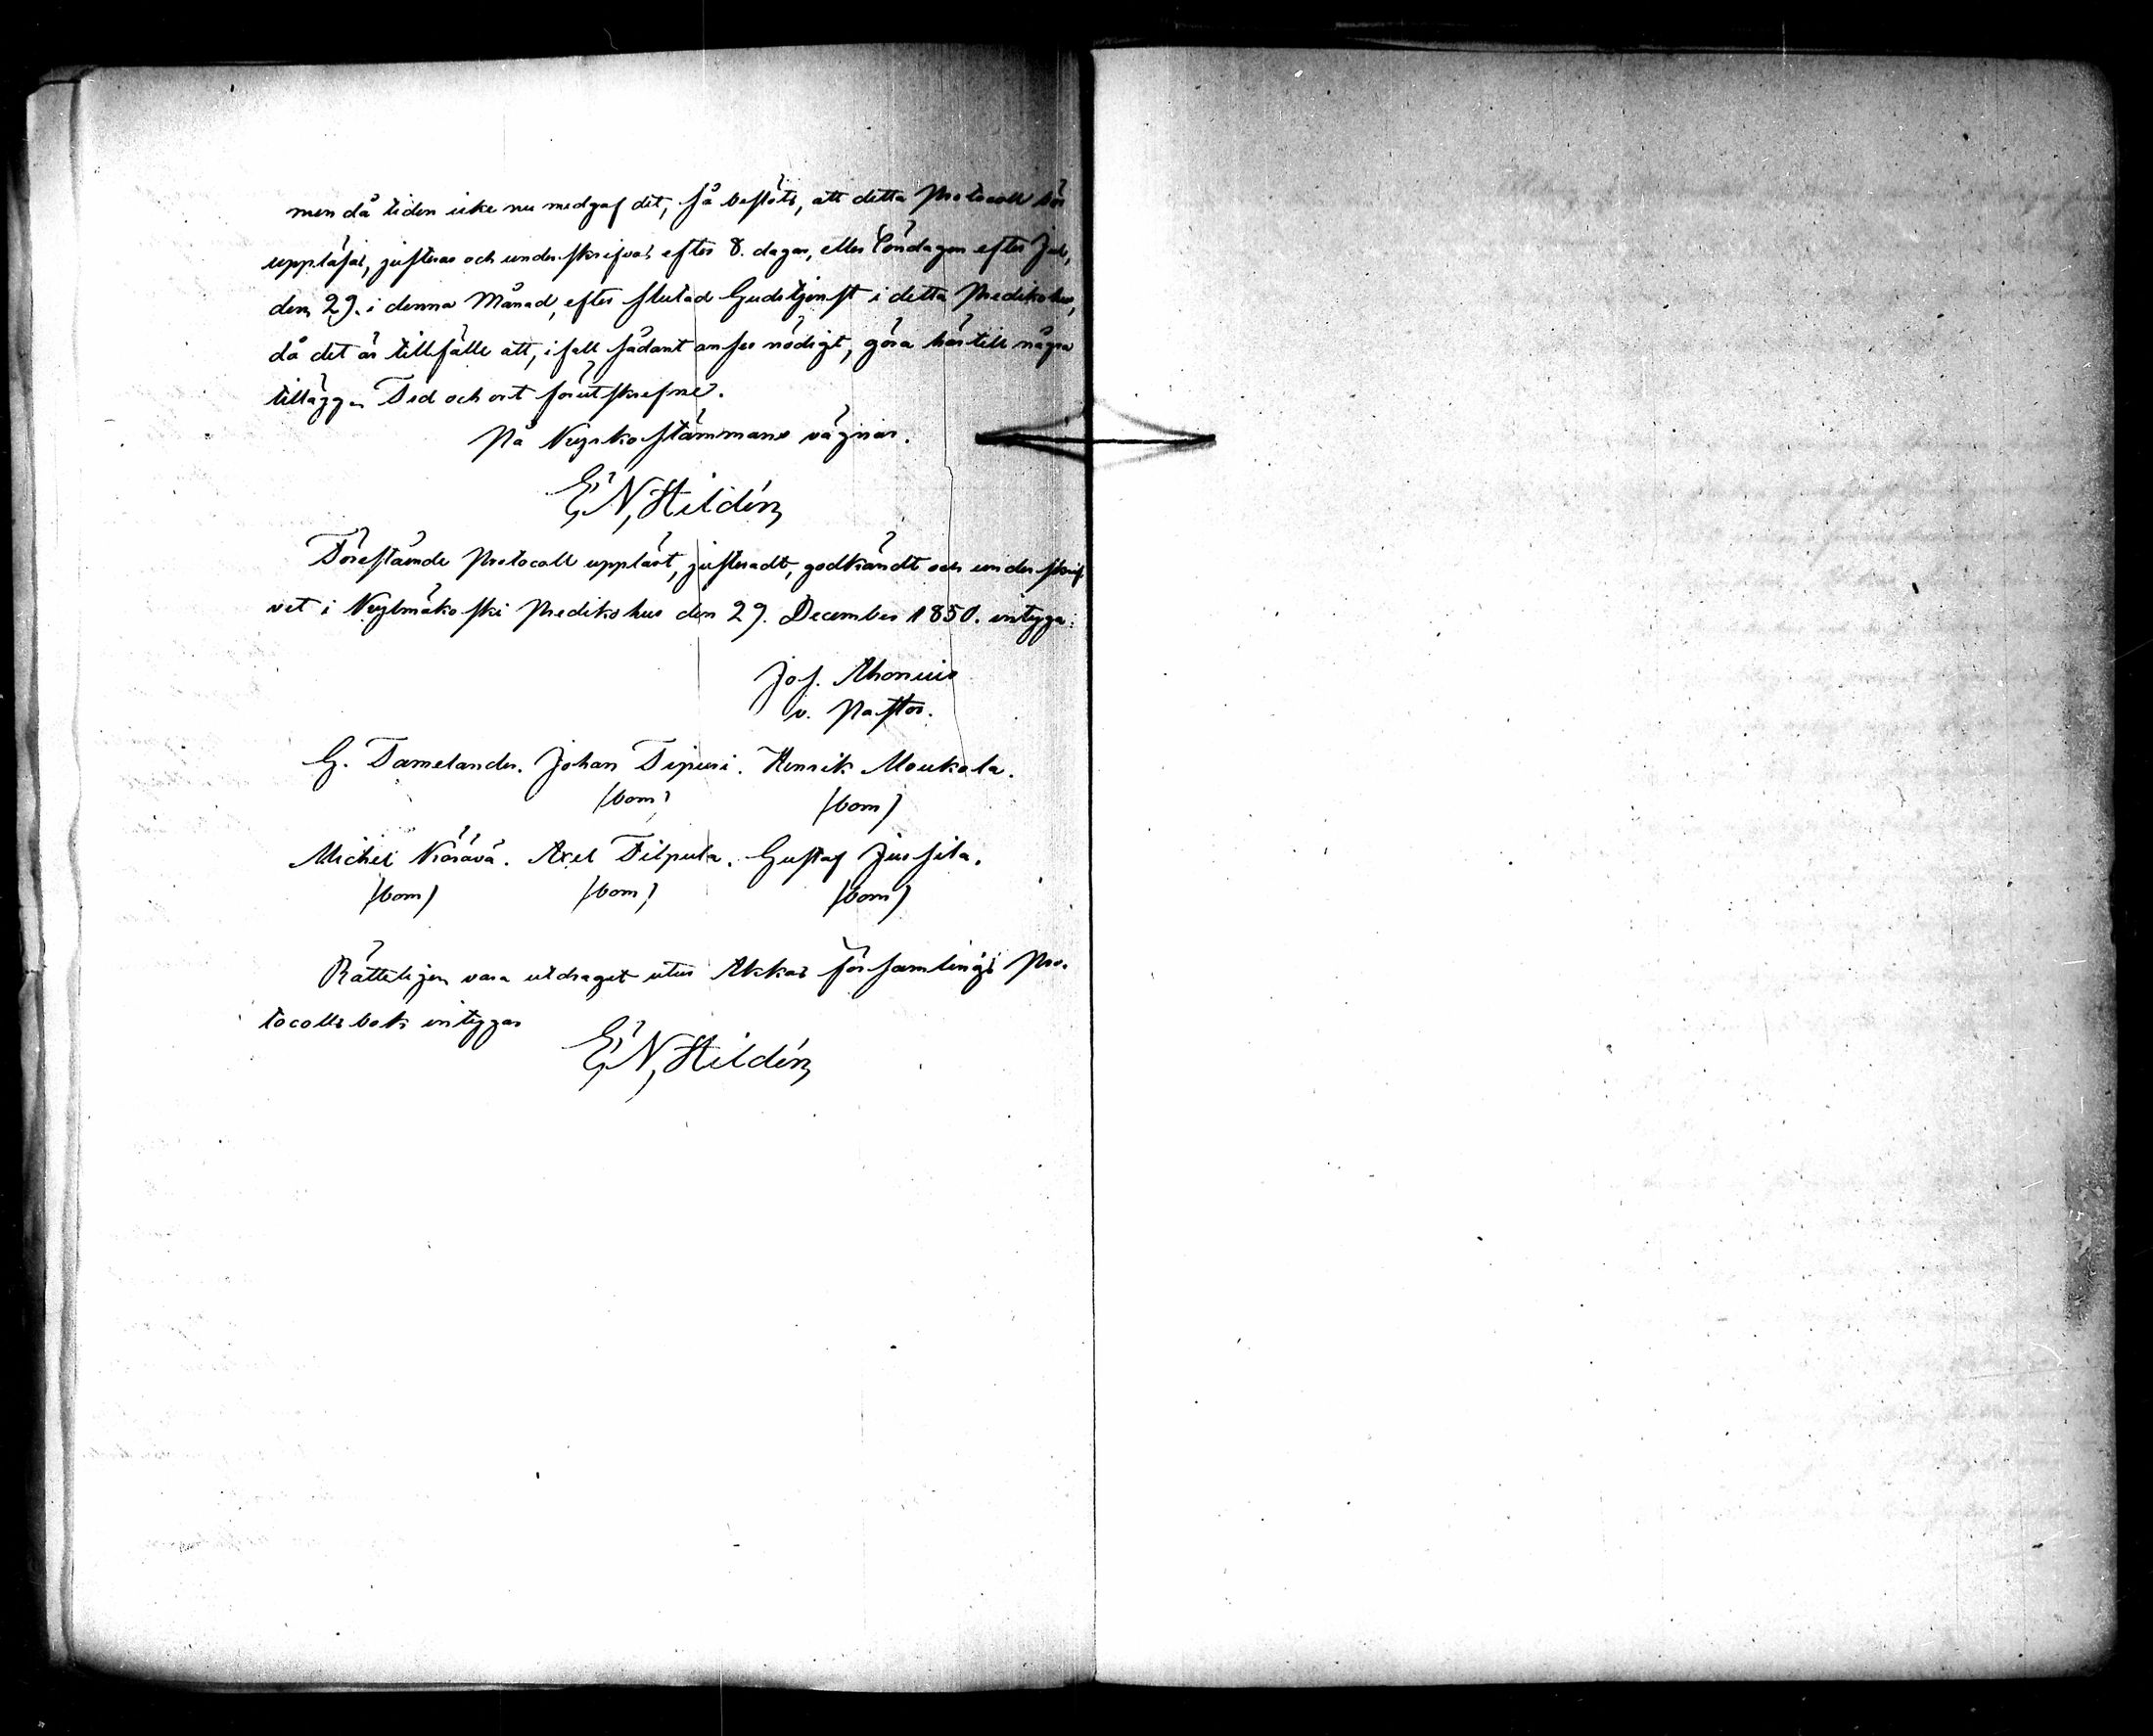 men då tiden icke nu medgaf det, så beslöts, att detta Protocoll bör
uppläsas, justeras och underskrifvas efter 8. dagar, eller Söndagen efter Jul,
den 29. i denna Månad, efter slutad Gudstjenst i detta Predikohus,
då det är tillfälle att, ifall sådant anses nödigt, göra härtill några
tillägg. Tid och ort förutskrefne.
På Kyrkostämmans vägnar.
E. N. Hildén
Förestående Protocoll uppläst, justeradt, godkändt och underskrif
vet i Kylmäkoski Predikohus den 29. December 1850. intyga:
Jos. Ahonius
v. Pastor.
G. Tamelander. Johan Tipuri. Henrik Moukola.
(bom) (bom)
Michel Kärävä. Axel Tilpula. Gustaf Jussila.
(bom) (bom) (bom)
Rätteligen vara utdraget utur Akkas församlings Pro-
tocolls bok intygar
E. N. Hildén